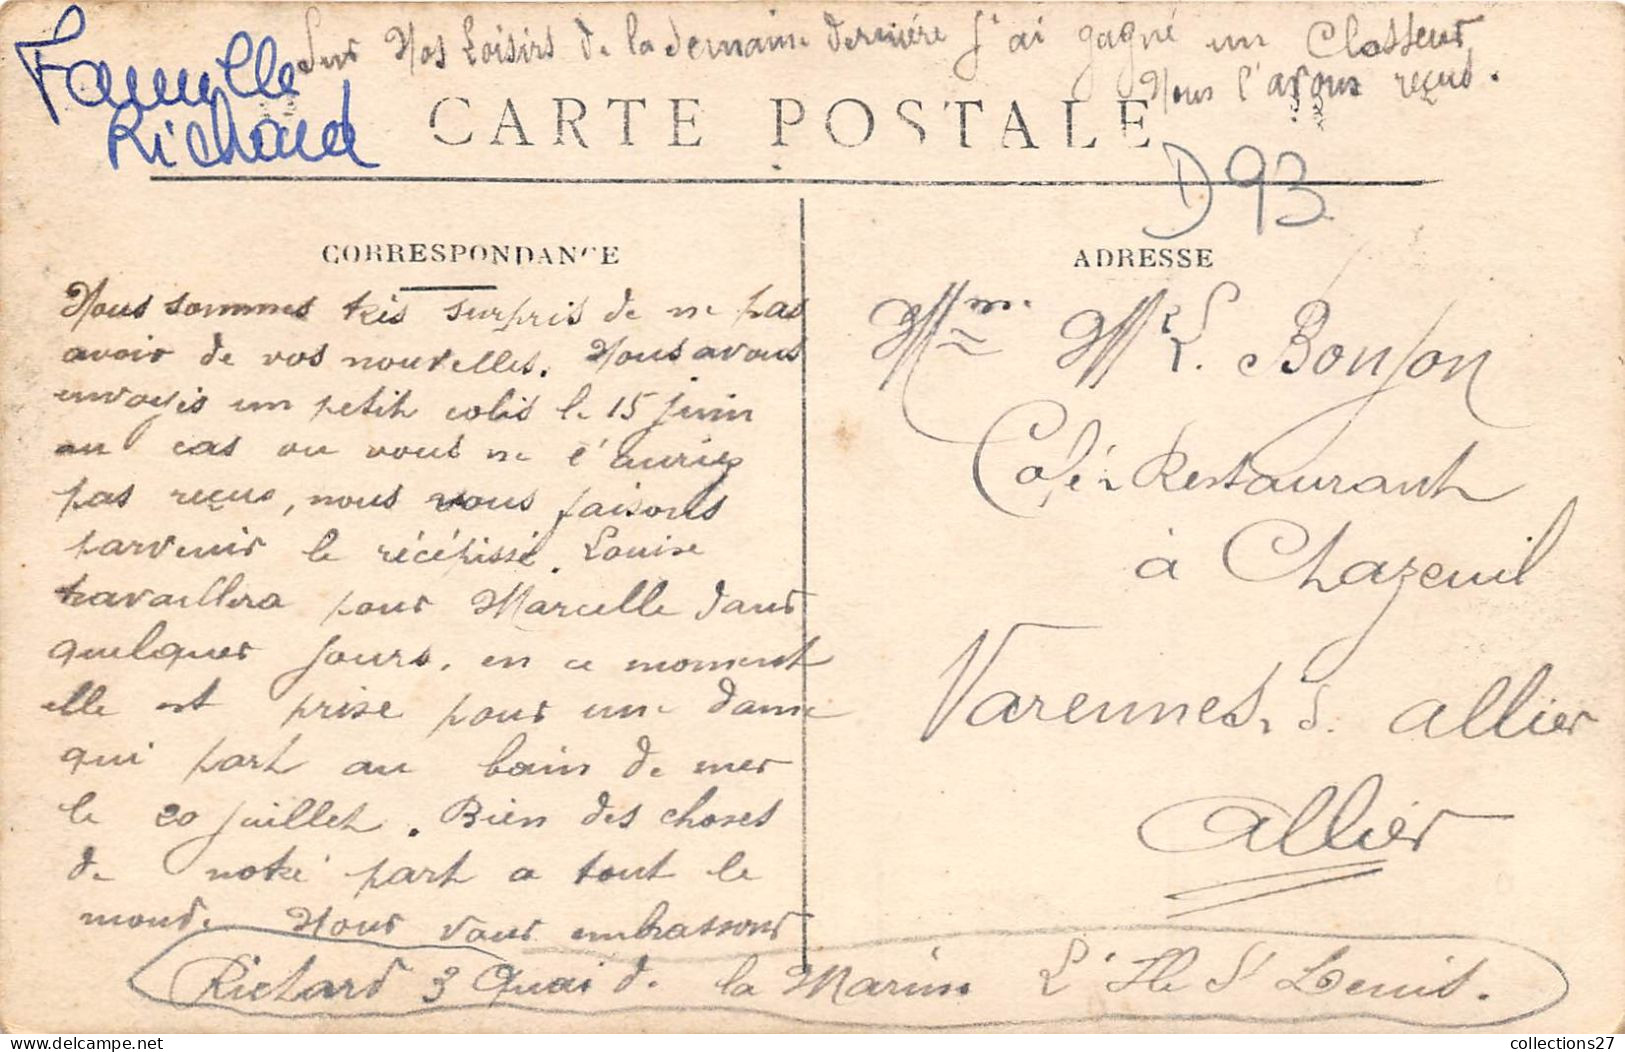 Famille
Richard
Sur Nos Loisirs de la semaine dernière j'ai gagné un Classeur
Nous l'avons reçus.
CARTE POSTALE
D93
CORRESPONDANCE
Nous sommes très surpris de ne pas
avoir de vos nouvelles. Nous avons
envoyés un petit colis le 15 juin
au cas ou vous ne l'auriez
pas reçus, nous vous faisons
parvenir le récépissé. Louise
travaillera pour Marcelle dans
quelques jours, en ce moment
elle est prise pour une dame
qui part au bain de mer
le 20 juillet. Bien des choses
de notre part a tout le
monde. Nous vous embrassons
Richard 3 Quai de la Marine L'Ile St Denis.
ADRESSE
Mme Bonjon
Café Restaurant
à Chazeuil
Varennes s. Allier
Allier
collections27